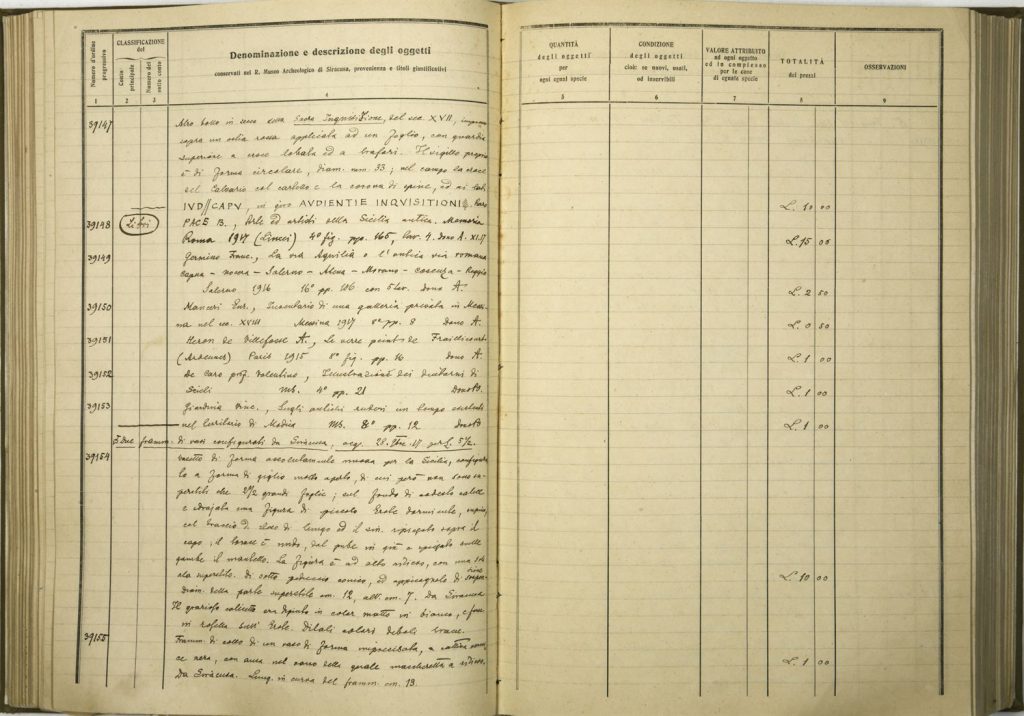 Numero d'ordine progressivo
CLASSIFICAZIONE del
Conto principale
Numero del sotto conto
Denominazione e descrizione degli oggetti
conservati nel R. Museo Archeologico di Siracusa, provenienza e titoli giustificativi
1 2 3 4
QUANTITÀ degli oggetti per ogni egual specie
CONDIZIONE degli oggetti cioè: se nuovi, usati, od inservibili
VALORE ATTRIBUITO ad ogni oggetto ed in complesso per le cose di eguale specie
TOTALITÀ dei prezzi
OSSERVAZIONI
5 6 7 8 9
39147 Altro bollo in secco della Sacra Inquisizione, del sec. XVII, impresso
sopra un ostia rossa applicata ad un foglio, con guardia
superiore a croce lobata ed a trafori. Il sigillo proprio
è di forma circolare, diam. mm. 33; nel campo la croce
del Calvario col cartello e la corona di spine, ed ai lati
IVD//CAPV, in giro AVDIENTIE INQVISITIONIS L. 10 00
39148 Libri PACE B., Arte ed artisti della Sicilia antica. Memoria
Roma 1917 (Lincei) 4º fig. pp. 165, tav. 4. dono A. XI.17 L. 15 00
39149 Franc., La via Aquilia o l'antica via romana
Capua - nocera - Salerno - Atena - Morano - Cosenza - Reggio
Salerno 1916 16º pp. 106 con 5 tav. dono A. L. 2 50
39150 Mauceri Enr., Inventario di una galleria privata in Messi-
na nel sec. XVIII Messina 1917 8º pp. 8 Dono A. L. 0 50
39151 Heron de Villefosse A., Le verre peint de
(Ardennes) Paris 1915 8º fig. pp. 16 dono A. L. 1 00
39152 De Caro prof. Valentino, Illustrazione dei dintorni di
Scicli Ms. 4º pp. 21 Dono A. L. 1 00
39153 Giardina Vinc., Sugli antichi ruderi un tempo esistenti
nel territorio di Modica Ms. 8º pp. 12 Dono A L. 1 00
Due framm. di vasi configurati da Siracusa, acq. 28. 17 per L. 572.
39154 Vasetto di forma assolutamente nuova per la Sicilia, configura-
to a forma di giglio molto aperto, di cui però non sono su-
perstiti che 2½ grandi foglie; sul fondo di
è sdraiata una figura di piccolo Erote dormiente,
col braccio d. steso di lungo ed il sin. ripiegato sopra il
capo; il torace è nudo, dal pube in giù è spiegato sulle
gambe il mantello. La figura è ad alto rilievo, con una
ala superstite. Di sotto peduccio conico, ed appiccagnolo di
Diam. della parte superstite cm. 12, alt. cm. 7. Da Siracusa L. 10 00
Il grazioso vasetto era dipinto in color matto in bianco, e forse
in rosetta sull'Erote. Di tali colori deboli tracce.
39155 Framm. di collo di un vaso di forma imprecisata, a vernice
ce nera, con ansa nel vano della quale mascheretta a rilievo. L. 1 00
Da Siracusa. Lung. in curva del framm. cm. 13.